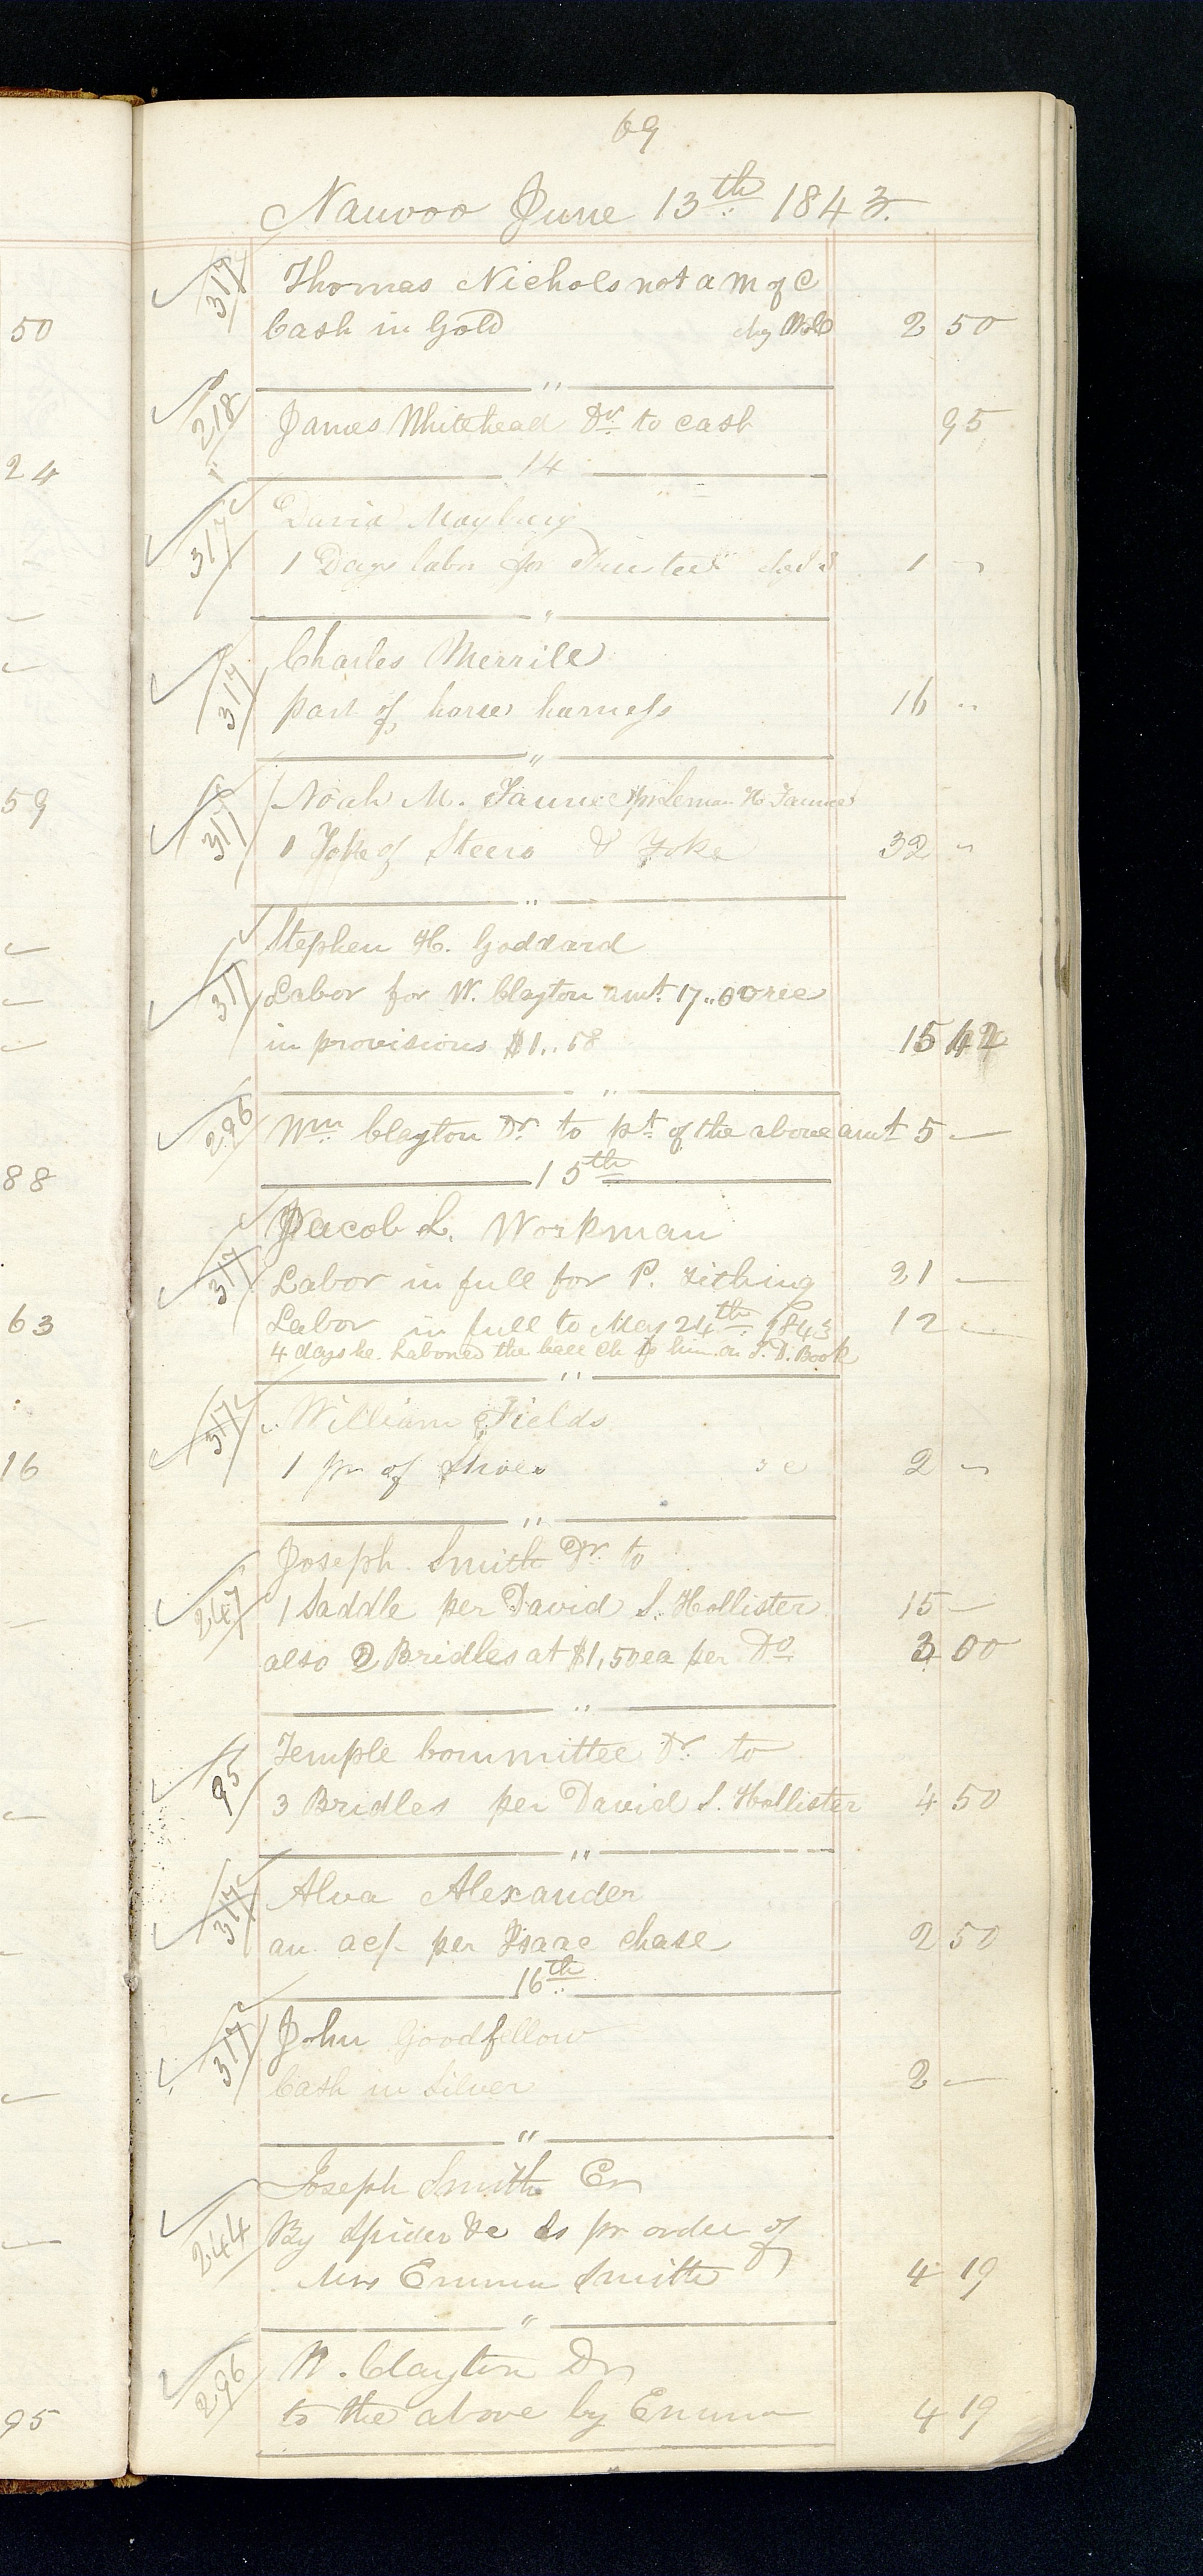 69
Nauvoo June 13th 1843.
319 Thomas Nichols not a M of C
50
Cash in Gold chg 2 50
"
218 James Whitehead Dr. to cash 95
24
14
317 David
1 Days labor for 1 "
"
317 Charles Merrill
part of horse harness 16 "
"
59
317 Noah M. Faunce pr Leman H Faunce
1 Yoke of Steers & Yoke 32 "
"
Stephen H. Goddard
317 Labor for W. Clayton amt. 17..00 rec
in provisions $1..58 15 42
"
296 Wm Clayton Dr. to pt. of the above amt 5 —
15th
88
Jacob L. Workman
317 Labor in full for P. Tithing 21 —
63
Labor in full to May 24th 1843 12 —
4 days he labored the ch to him on T. D. Book
"
317 William Fields
16
1 pr of Shoes 2 "
"
Joseph Smith Dr. to
247 1 Saddle per David S. Hollister 15 —
also 2 Bridles at $1,50 ea per Do 3 00
"
Temple Committee Dr. to
95 3 Bridles per David S. Hollister 4 50
"
317 Alva Alexander
an acf. per Isaac Chase 2 50
16th
317 John Goodfellow
Cash in Silver 2 —
"
Joseph Smith Cr
244 By Spider &c pr order of
Mrs Emma Smith 4 19
"
296 W. Clayton Dr
to the above by Emma 4 19
95